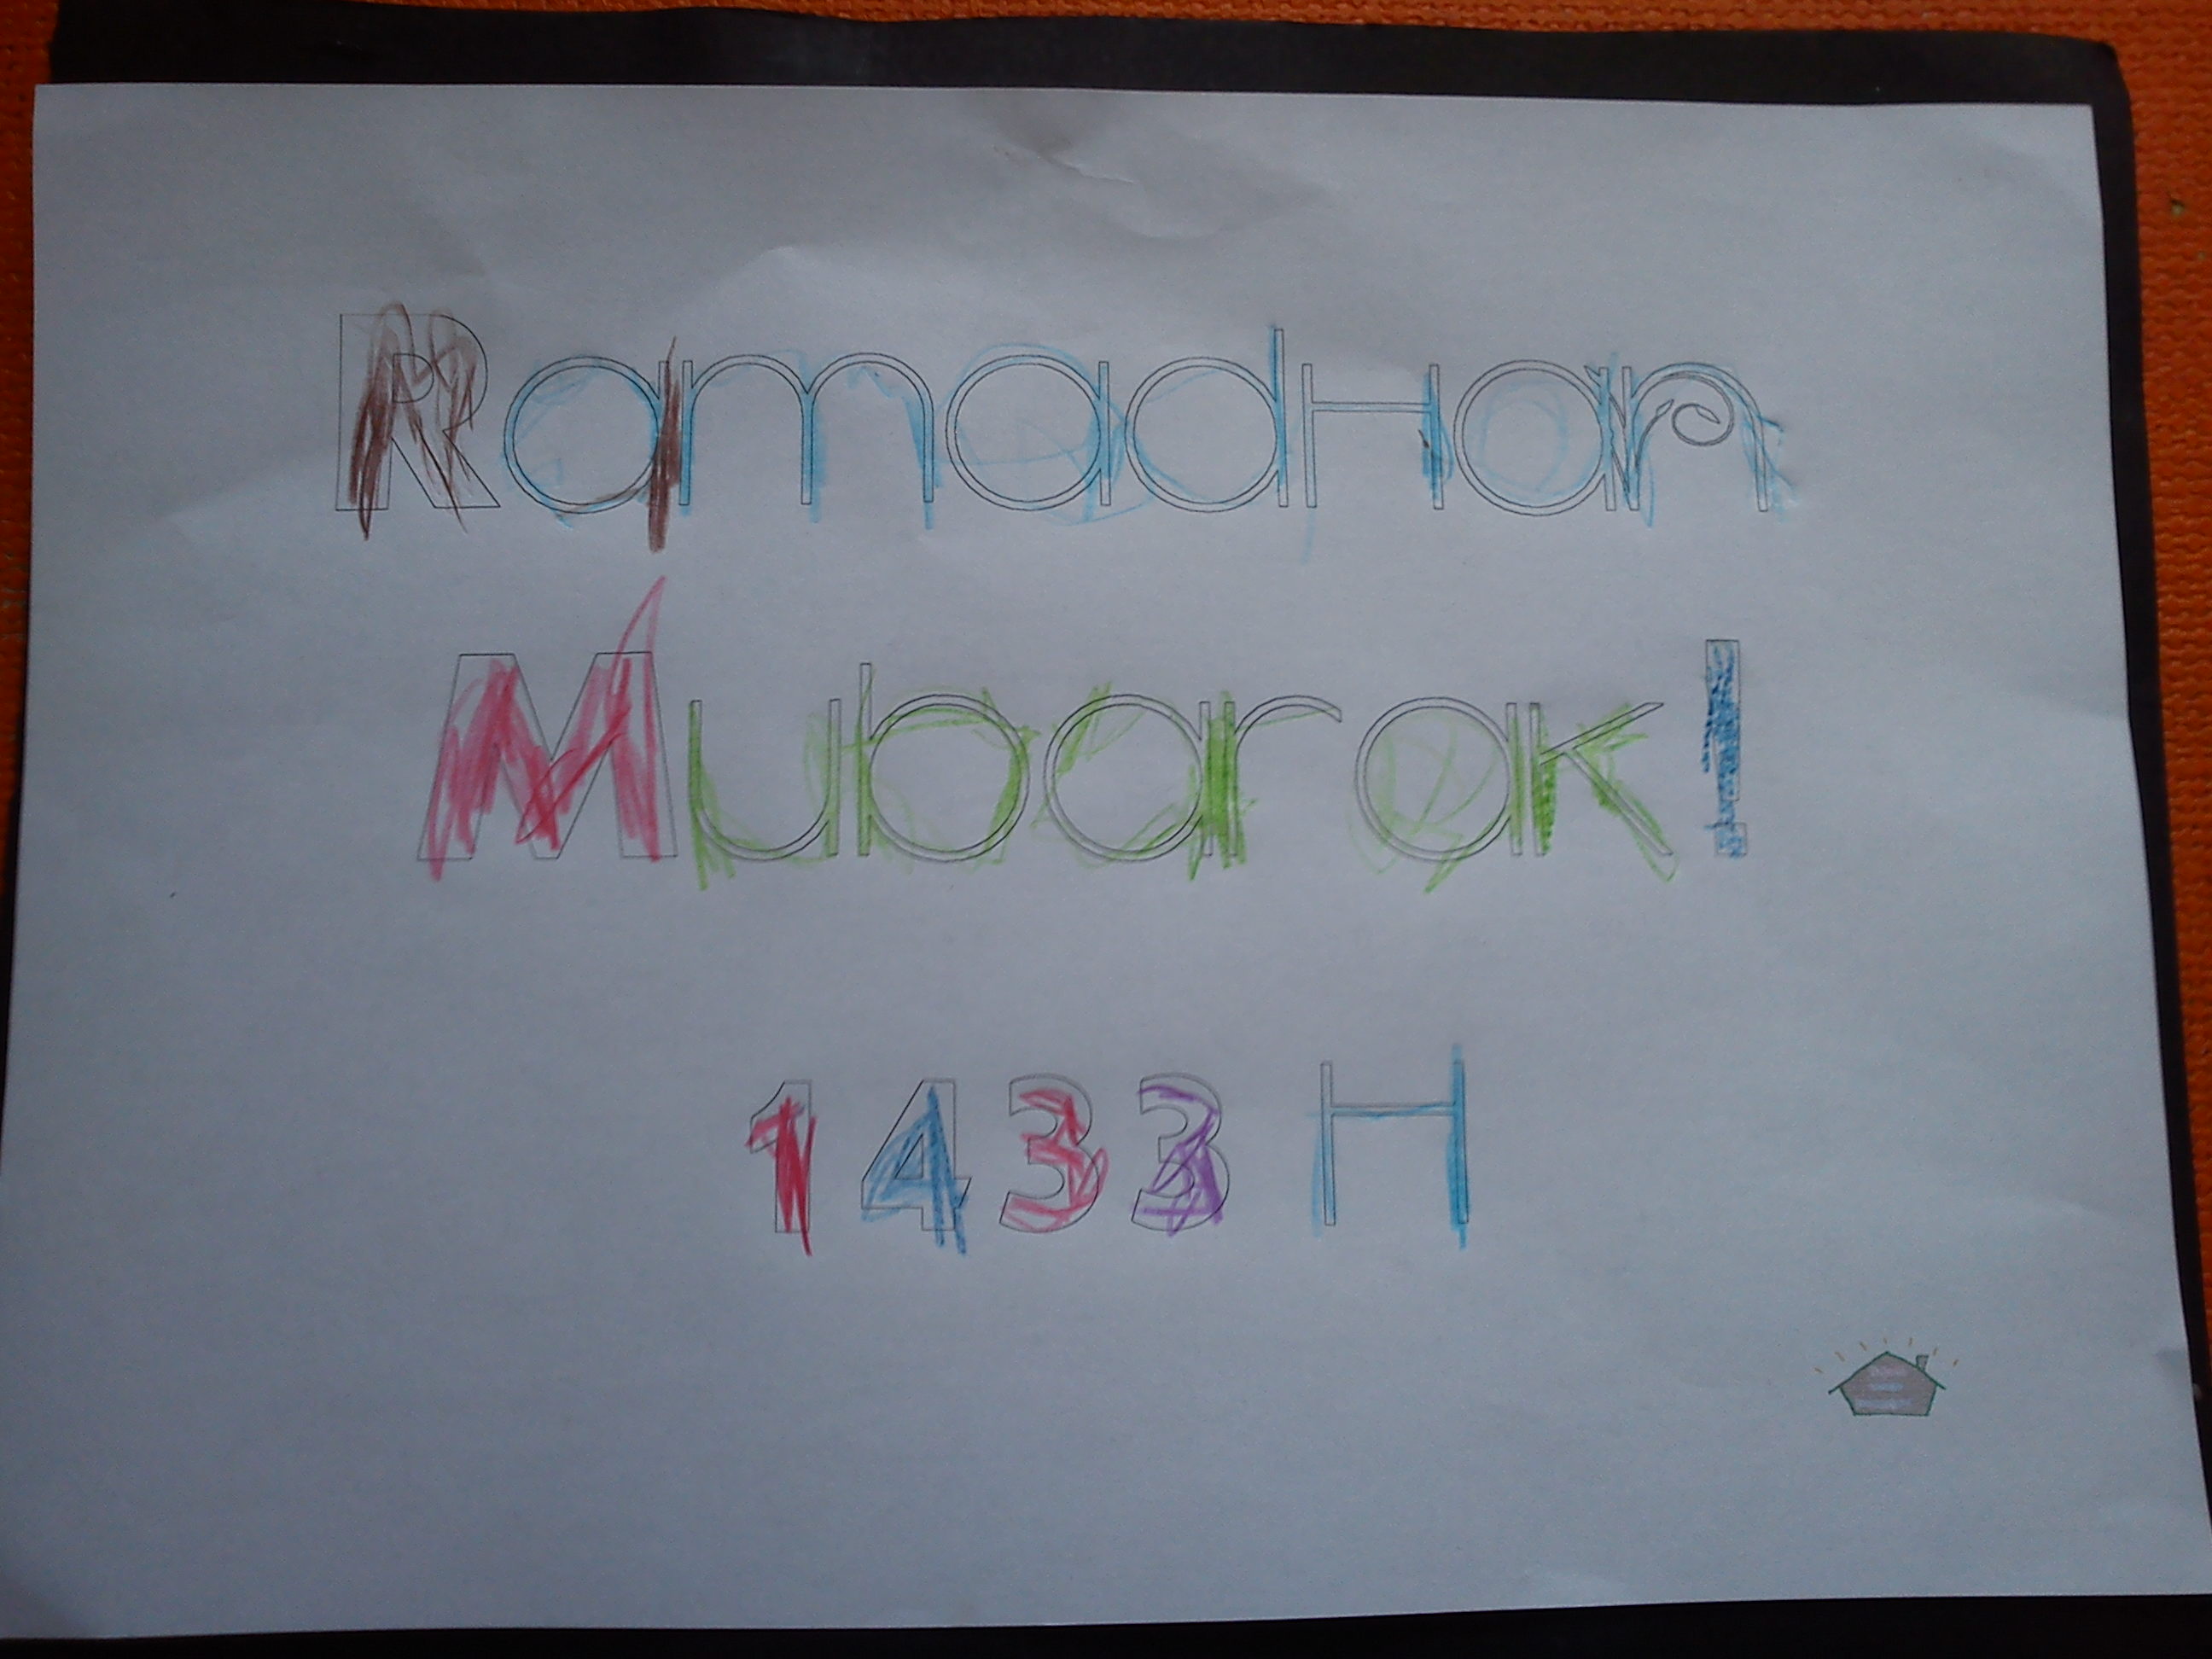 RamadHan
Mubarak!
1433 H